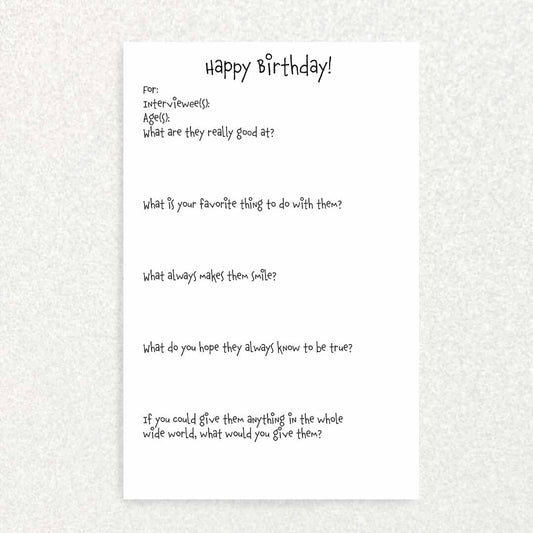 Happy Birthday!
For:
Interviewee(s):
Age(s):
What are they really good at?
What is your favorite thing to do with them?
What always makes them smile?
What do you hope they always know to be true?
If you could give them anything in the whole
wide world, what would you give them?